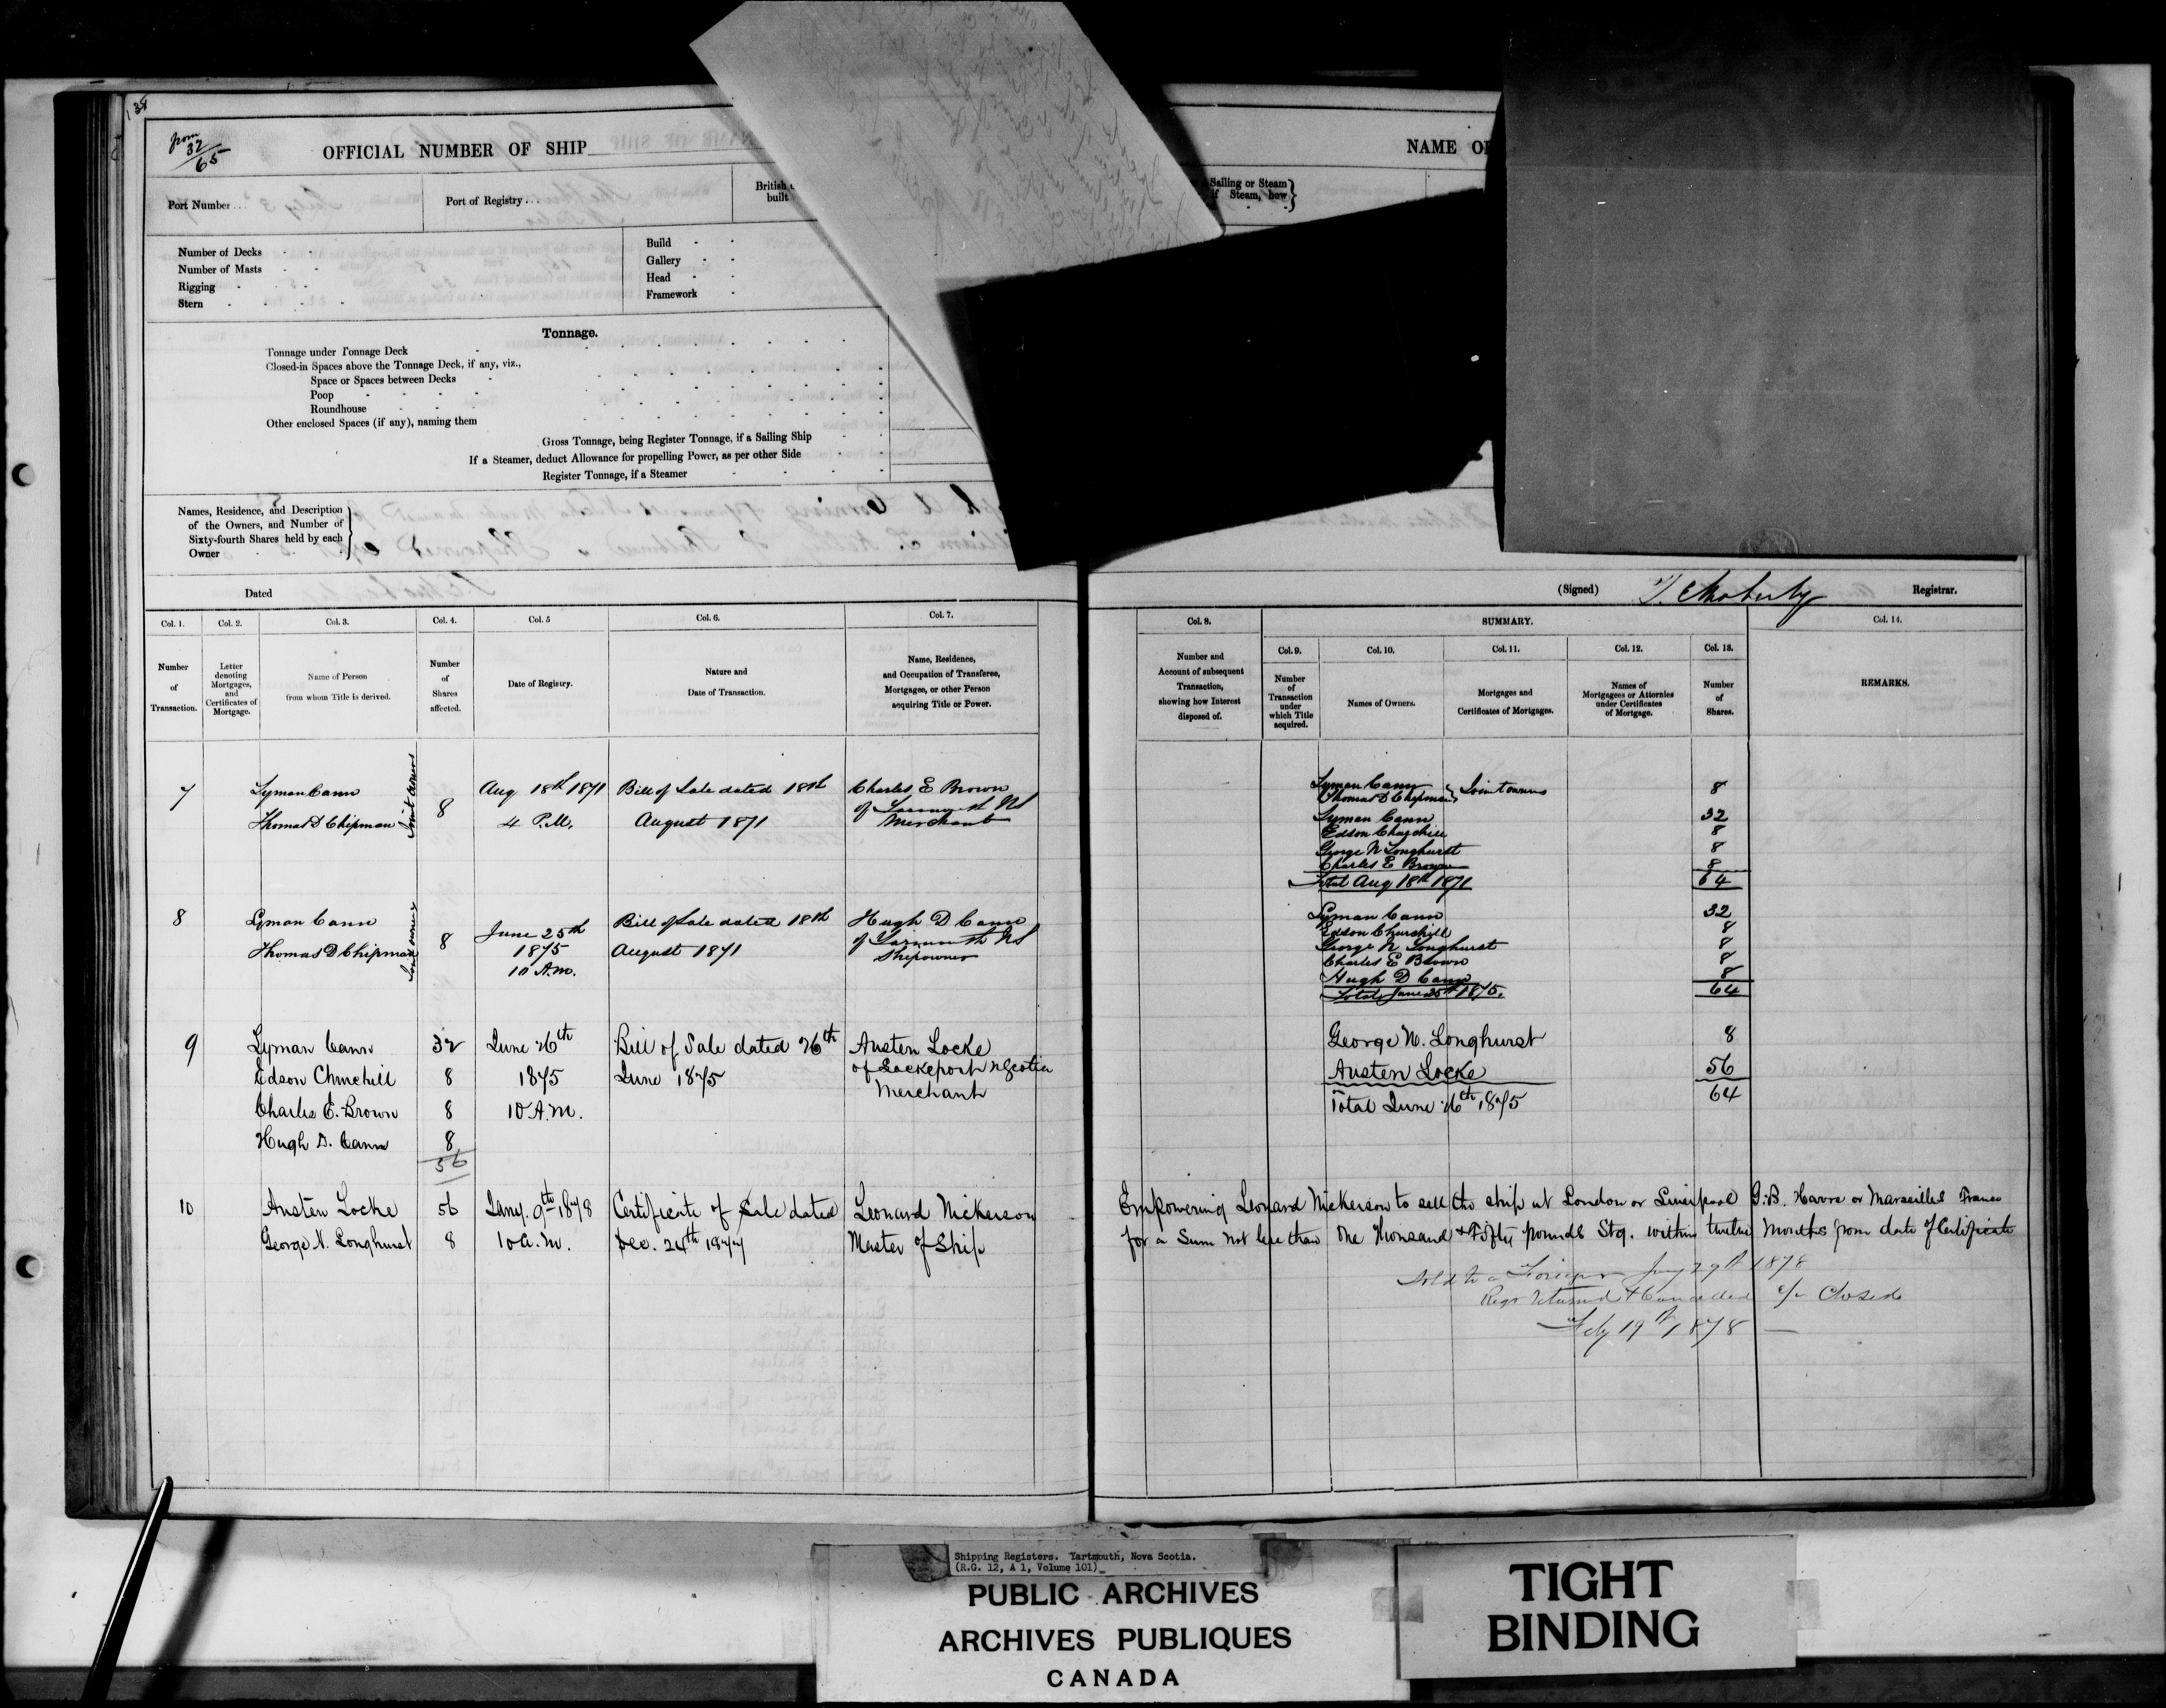 138
from 32/65
OFFICIAL NUMBER OF SHIP
NAME OF
Port Number...
Port of Registry...
British
built
Sailing or Steam
if Steam, how
Number of Decks
Number of Masts
Rigging
Stern
Build
Gallery
Head
Framework
Tonnage.
Tonnage under Tonnage Deck
Closed-in Spaces above the Tonnage Deck, if any, viz.,
Space or Spaces between Decks
Poop
Roundhouse
Other enclosed Spaces (if any), naming them
Gross Tonnage, being Register Tonnage, if a Sailing Ship
If a Steamer, deduct Allowance for propelling Power, as per other Side
Register Tonnage, if a Steamer
Names, Residence, and Description
of the Owners, and Number of
Sixty-fourth Shares held by each
Owner
Dated
(Signed)
Registrar.
Col. 1. Col. 2. Col. 3. Col. 4. Col. 5 Col. 6. Col. 7.
Number of Transaction.
Letter denoting Mortgages, and Certificates of Mortgage.
Name of Person from whom Title is derived.
Number of Shares affected.
Date of Registry.
Nature and Date of Transaction.
Name, Residence, and Occupation of Transferee, Mortgagee, or other Person acquiring Title or Power.
Col. 8. SUMMARY. Col. 14.
Col. 9. Col. 10. Col. 11. Col. 12. Col. 13.
Number and Account of subsequent Transaction, showing how Interest disposed of.
Number of Transaction under which Title acquired.
Names of Owners.
Mortgages and Certificates of Mortgages.
Names of Mortgagees or Attornies under Certificates of Mortgage.
Number of Shares.
REMARKS.
7 Lyman Cann 8 Aug 18th 1871 Bill of Sale dated 18th Charles E Brown
Thomas D Chipman Joint owners 4 P.M. August 1871 of Yarmouth NS
Merchant
Lyman Cann
Thomas D Chipman } Joint owners 8
Lyman Cann 32
Edson Churchill 8
George N Longhurst 8
Charles E Brown 8
Total Aug 18th 1871 64
8 Lyman Cann 8 June 25th Bill of Sale dated 18th Hugh D Cann
Thomas D Chipman Joint owners 1875 August 1871 of Yarmouth NS
10 A.M. Shipowner
Lyman Cann 32
Edson Churchill 8
George N Longhurst 8
Charles E Brown 8
Hugh D Cann 8
Total June 25th 1875. 64
9 Lyman Cann 32 June 26th Bill of Sale dated 26th Austen Locke
Edson Churchill 8 1875 June 1875 of Lockeport NScotia
Charles E. Brown 8 10 A.M. Merchant
Hugh D. Cann 8
56
George N. Longhurst 8
Austen Locke 56
Total June 26th 1875 64
10 Austen Locke 56 Jany. 9th 1878 Certificate of Sale dated Leonard Nickerson
George N. Longhurst 8 10 a.m. Dec. 24th 1877 Master of Ship
Empowering Leonard Nickerson to sell the ship at London or Liverpool G.B. Havre or Marseilles France
for a Sum not less than One Thousand & Fifty pounds Stg. within twelve Months from date of Certificate
Sold to a Foreigner Jany 29th 1878
Regr Returned & Cancelled Closed
Feby 19th 1878
Shipping Registers. Yartmouth, Nova Scotia.
(R.G. 12, A 1, Volume 101)
PUBLIC ARCHIVES
ARCHIVES PUBLIQUES
CANADA
TIGHT
BINDING